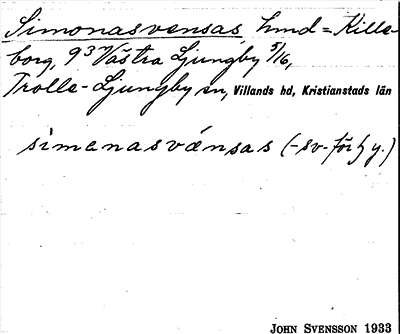 Simonasvensas, hmd = Kille-
borg, 9³ⁿ Västra Ljungby 5/16,
Trolle-Ljungby sn, Villands hd, Kristianstads län
simenasvænsas (-sv- förty.)
JOHN SVENSSON 1933